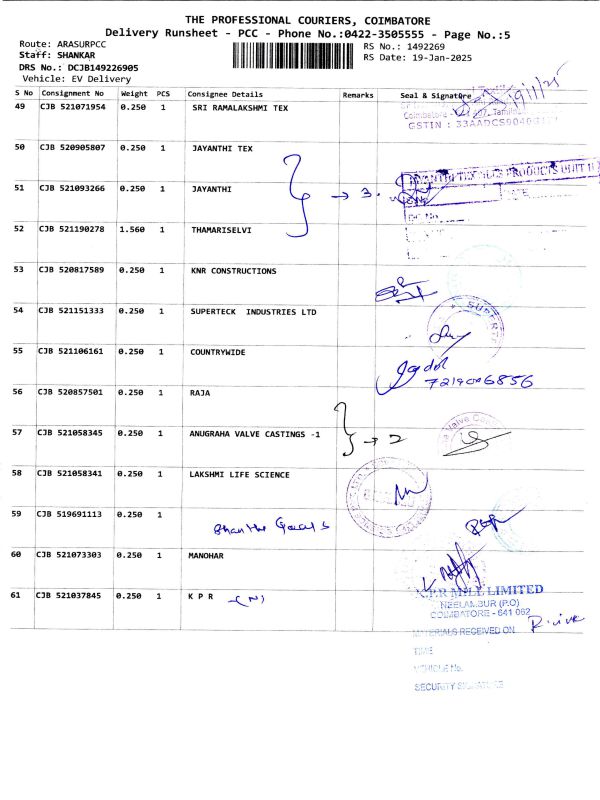 THE PROFESSIONAL COURIERS, COIMBATORE
Delivery Runsheet - PCC - Phone No.:0422-3505555 - Page No.:5
Route: ARASURPCC
Staff: SHANKAR
DRS No.: DCJB149226905
Vehicle: EV Delivery
RS No.: 1492269
RS Date: 19-Jan-2025
S No Consignment No Weight PCS Consignee Details Remarks Seal & Signatore
49 CJB 521071954 0.250 1 SRI RAMALAKSHMI TEX
19/1/25
Coimbatore
GSTIN : 33AADCS9040G1
50 CJB 520905807 0.250 1 JAYANTHI TEX
51 CJB 521093266 0.250 1 JAYANTHI
→ 3.
PRODUCTS UNIT II
DATE
52 CJB 521190278 1.560 1 THAMARISELVI
53 CJB 520817589 0.250 1 KNR CONSTRUCTIONS
54 CJB 521151333 0.250 1 SUPERTECK INDUSTRIES LTD
SUPERTE
55 CJB 521106161 0.250 1 COUNTRYWIDE
7219006856
56 CJB 520857501 0.250 1 RAJA
57 CJB 521058345 0.250 1 ANUGRAHA VALVE CASTINGS -1
→ 2
58 CJB 521058341 0.250 1 LAKSHMI LIFE SCIENCE
59 CJB 519691113 0.250 1
60 CJB 521073303 0.250 1 MANOHAR
61 CJB 521037845 0.250 1 K P R
-(N)
K.P.R MILL LIMITED
NEELAMBUR (P.O)
COIMBATORE - 641 062
MATERIALS RECEIVED ON
TIME
VEHICLE No.
SECURITY SIGNATURE